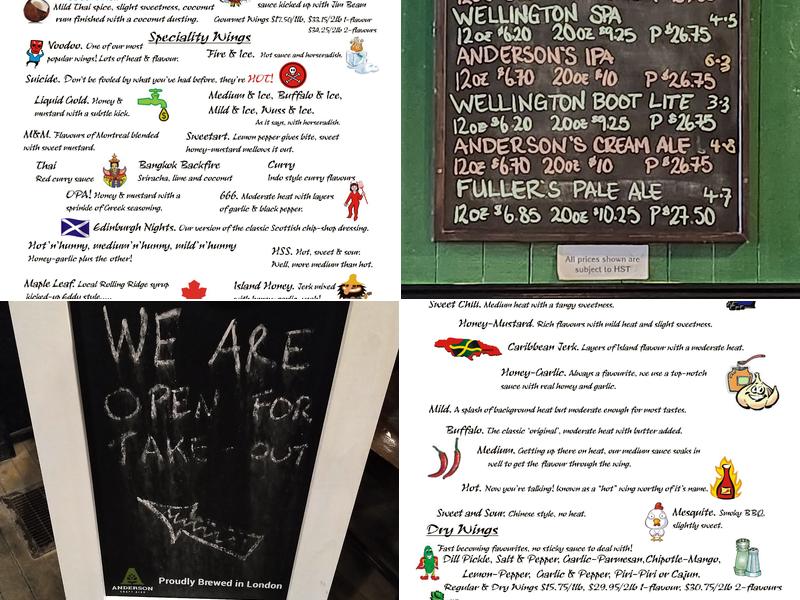 Mild Thai spice, slight sweetness, coconut
rum finished with a coconut dusting.
sauce kicked up with Jim Beam
Gourmet Wings $17.50/1lb, $33.15/2lb 1-flavour
$34.25/2lb 2-flavours
Speciality Wings
Voodoo. One of our most
popular wings! Lots of heat & flavour.
Fire & Ice. Hot sauce and horseradish.
Suicide. Don't be fooled by what you've had before, they're HOT!
Liquid Gold. Honey &
mustard with a subtle kick.
Medium & Ice, Buffalo & Ice,
Mild & Ice, Wuss & Ice.
As it says, with horseradish.
M&M. Flavours of Montreal blended
with sweet mustard.
Sweetart. Lemon pepper gives bite, sweet
honey-mustard mellows it out.
Thai
Red curry sauce
Bangkok Backfire
Sriracha, lime and coconut
Curry
Indo style curry flavours
OPA! Honey & mustard with a
sprinkle of Greek seasoning.
666. Moderate heat with layers
of garlic & black pepper.
Edinburgh Nights. Our version of the classic Scottish chip-shop dressing.
Hot'n'hunny, medium'n'hunny, mild'n'hunny
Honey-garlic plus the other!
HSS. Hot, sweet & sour.
Well, more medium than hot.
Maple Leaf. Local Rolling Ridge syrup
kicked-up Eddy style.....
Island Honey. Jerk mixed
WELLINGTON SPA 4.5
12oz $6.20 20oz $9.25 P $26.75
ANDERSON'S IPA 6.3
12oz $6.70 20oz $10 P $26.75
WELLINGTON BOOT LITE 3.3
12oz $6.20 20oz $9.25 P $26.75
ANDERSON'S CREAM ALE 4.8
12oz $6.70 20oz $10 P $26.75
FULLER'S PALE ALE 4.7
12oz $6.85 20oz $10.25 P $27.50
All prices shown are
subject to HST
WE ARE
OPEN FOR
TAKE-OUT
ANDERSON
CRAFT ALES
Proudly Brewed in London
Sweet Chili. Medium heat with a tangy sweetness.
Honey-Mustard. Rich flavours with mild heat and slight sweetness.
Caribbean Jerk. Layers of Island flavour with a moderate heat.
Honey-Garlic. Always a favourite, we use a top-notch
sauce with real honey and garlic.
Mild. A splash of background heat but moderate enough for most tastes.
Buffalo. The classic 'original', moderate heat with butter added.
Medium. Getting up there on heat, our medium sauce soaks in
well to get the flavour through the wing.
Hot. Now you're talking! known as a "hot" wing worthy of it's name.
Sweet and Sour. Chinese style, no heat.
Mesquite. Smoky BBQ,
slightly sweet.
Dry Wings
Fast becoming favourites, no sticky sauce to deal with!
Dill Pickle, Salt & Pepper, Garlic-Parmesan, Chipotle-Mango,
Lemon-Pepper, Garlic & Pepper, Piri-Piri or Cajun.
Regular & Dry Wings $15.75/1lb, $29.95/2lb 1-flavour, $30.75/2lb 2-flavours